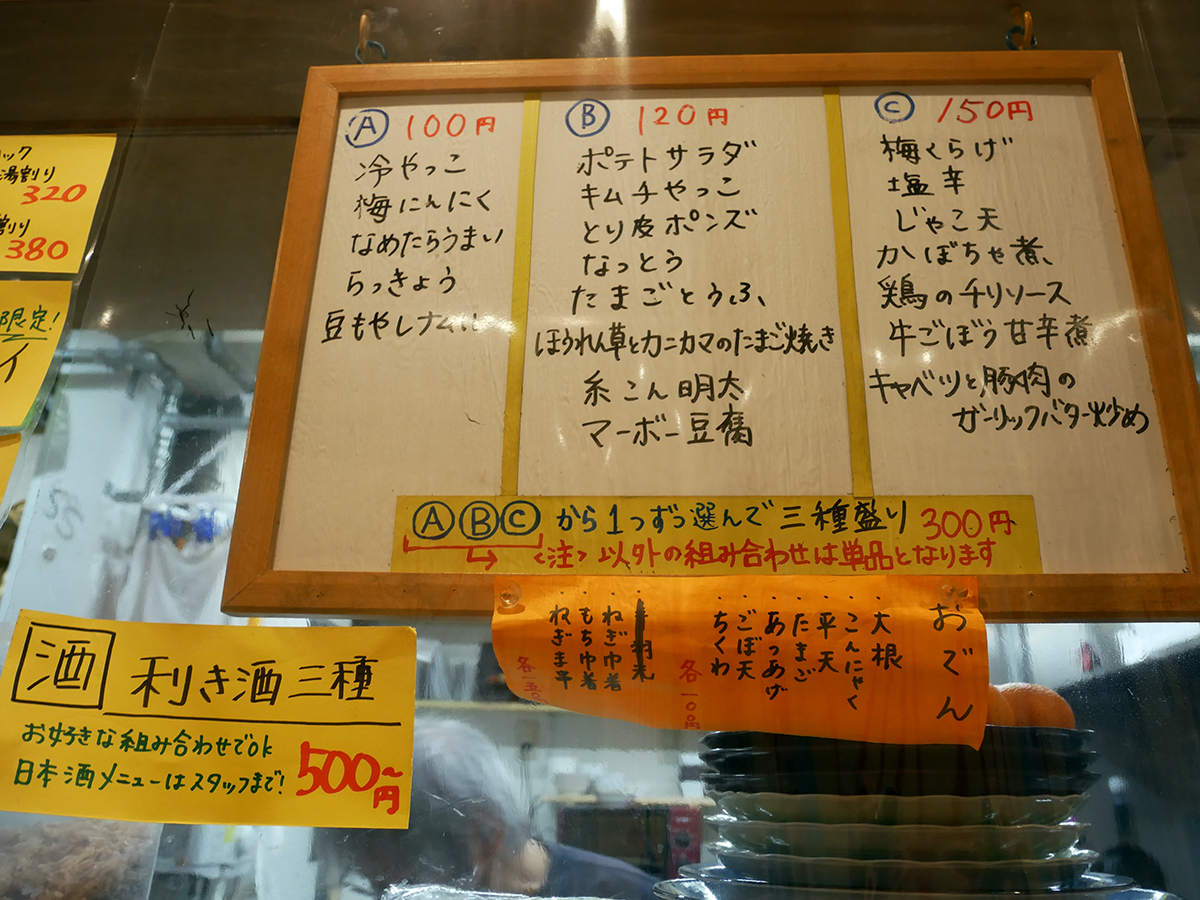 Ⓐ 100円
冷やっこ
梅にんにく
なめたらうまい
らっきょう
豆もやしナムル
Ⓑ 120円
ポテトサラダ
キムチやっこ
とり皮ポンズ
なっとう
たまごとうふ、
ほうれん草とカニカマのたまご焼き
糸こん明太
マーボー豆腐
Ⓒ 150円
梅くらげ
塩辛
じゃこ天
かぼちゃ煮、
鶏のチリソース
牛ごぼう甘辛煮
キャベツと豚肉の
ガーリックバター炒め
ⒶⒷⒸから1つずつ選んで三種盛り300円
<注>以外の組み合わせは単品となります
おでん
・大根
・こんにゃく
・平天
・たまご
・あつあげ
・ごぼ天
・ちくわ
各一〇円
・ねぎ巾着
・もち巾着
・ねぎま串
各一五〇
ック
湯割り
320
割り
380
限定!
イ
酒 利き酒三種
お好きな組み合わせでOK
日本酒メニューはスタッフまで!
500円~